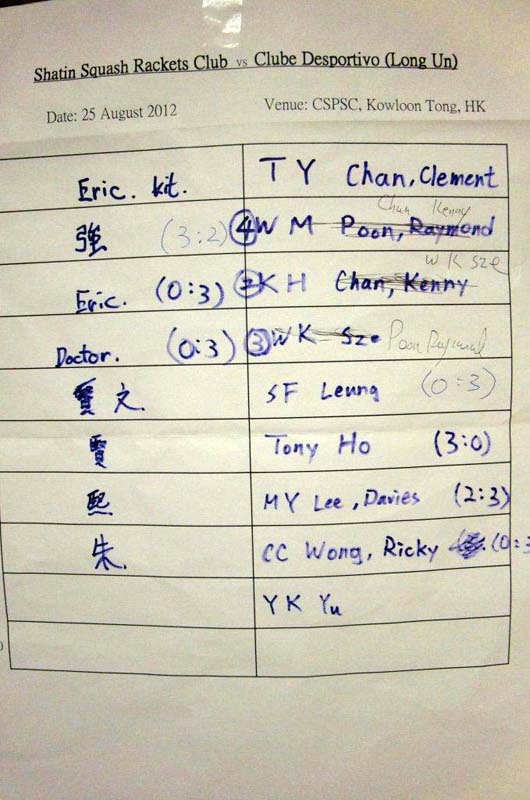 Shatin Squash Rackets Club vs Clube Desportivo (Long Un)
Date: 25 August 2012 Venue: CSPSC, Kowloon Tong, HK
Eric. kit. T Y Chan, Clement
Chan Kenny
強 (3:2) ④ W M Poon, Raymond
W K Sze
Eric. (0:3) ② K H Chan, Kenny
Doctor. (0:3) ③ W K Sze Poon Raymond
賢文. SF Leung (0:3)
賢 Tony Ho (3:0)
熙 MY Lee, Davies (2:3)
朱. CC Wong, Ricky (0:3
Y K Yu